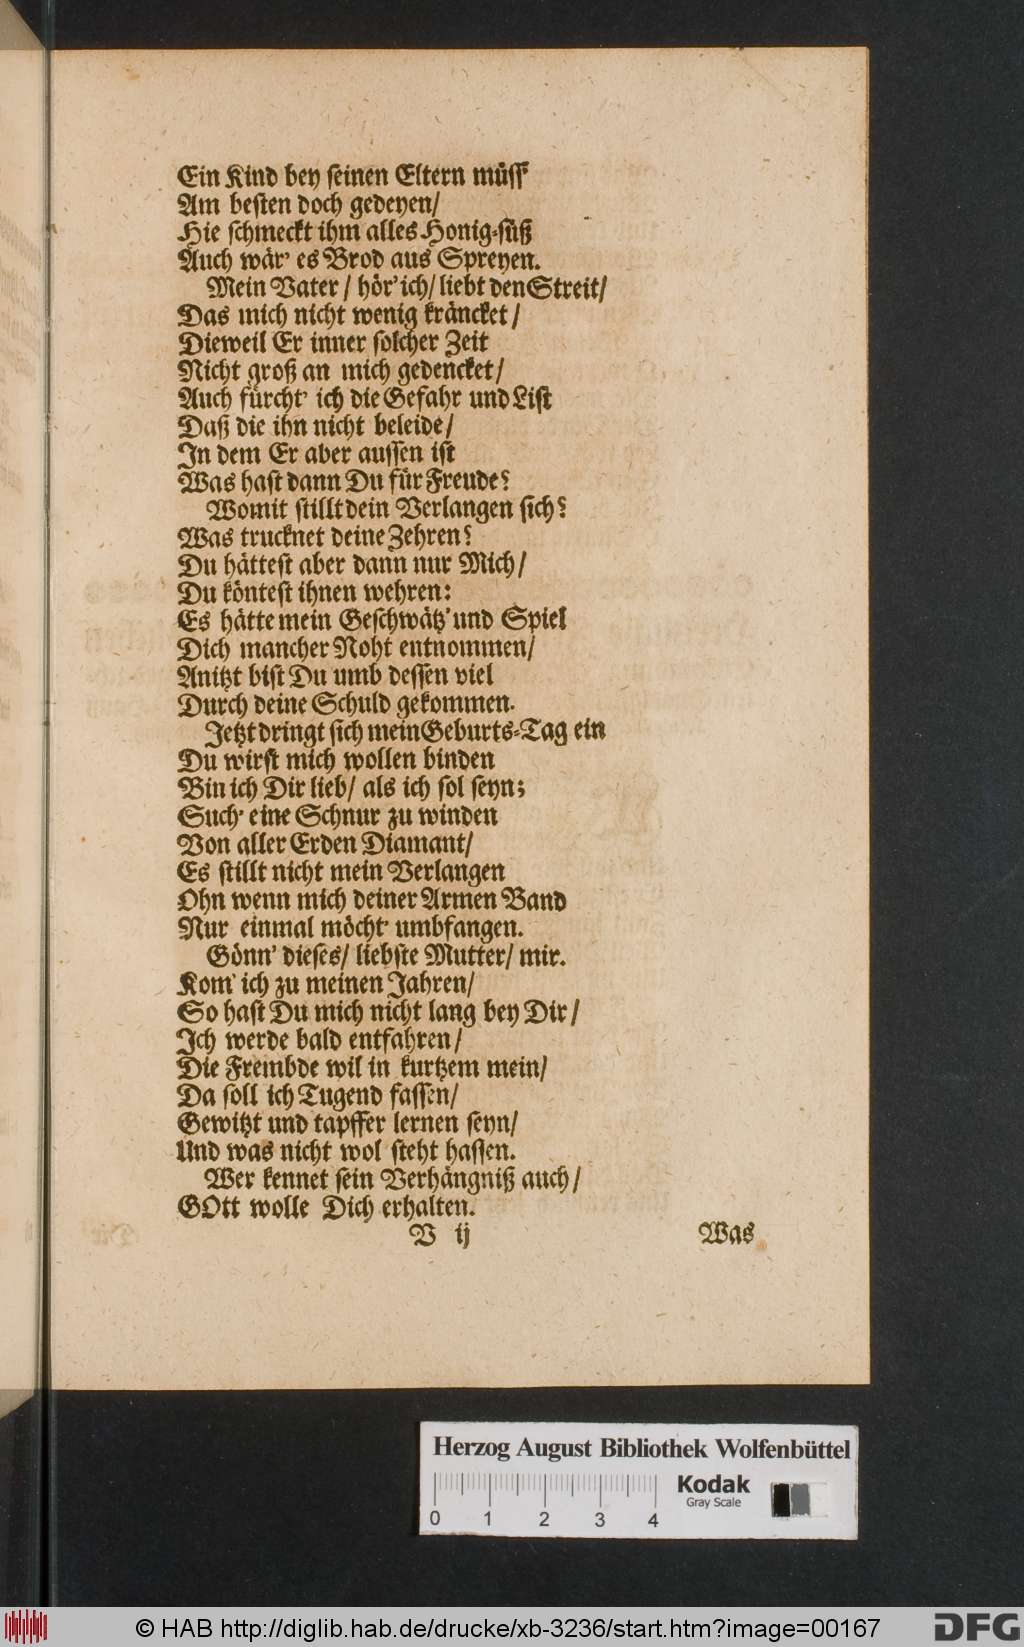 Ein Kind bey seinen Eltern müss'
Am besten doch gedeyen/
Hie schmeckt ihm alles Honig-süß
Auch wär' es Brod aus Spreyen.
Mein Vater/ hör' ich/ liebt den Streit/
Das mich nicht wenig kräncket/
Dieweil Er inner solcher Zeit
Nicht groß an mich gedencket/
Auch fürcht' ich die Gefahr und List
Daß die ihn nicht beleide/
In dem Er aber aussen ist
Was hast dann Du für Freude?
Womit stillt dein Verlangen sich?
Was trucknet deine Zehren?
Du hättest aber dann nur Mich/
Du köntest ihnen wehren:
Es hätte mein Geschwätz' und Spiel
Dich mancher Noht entnommen/
Anitzt bist Du umb dessen viel
Durch deine Schuld gekommen.
Jetzt dringt sich mein Geburts-Tag ein
Du wirst mich wollen binden
Bin ich Dir lieb/ als ich sol seyn;
Such' eine Schnur zu winden
Von aller Erden Diamant/
Es stillt nicht mein Verlangen
Ohn wenn mich deiner Armen Band
Nur einmal möcht' umbfangen.
Gönn' dieses/ liebste Mutter/ mir.
Kom' ich zu meinen Jahren/
So hast Du mich nicht lang bey Dir/
Ich werde bald entfahren/
Die Frembde wil in kurtzem mein/
Da soll ich Tugend fassen/
Gewitzt und tapffer lernen seyn/
Und was nicht wol steht hassen.
Wer kennet sein Verhängniß auch/
GOtt wolle Dich erhalten.
V ij Was
Herzog August Bibliothek Wolfenbüttel
Kodak
Gray Scale
0 1 2 3 4
© HAB http://diglib.hab.de/drucke/xb-3236/start.htm?image=00167
DFG